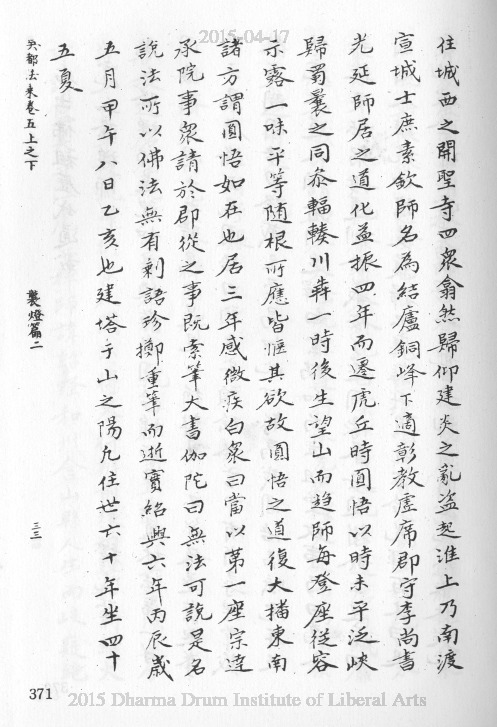 2015-04-17
住城西之開聖寺四衆翕然歸仰建炎之亂盜起淮上乃南渡
宣城士庶素欽師名為結廬銅峰下適彰教虛席郡守李尚書
光延師居之道化益振四年而遷虎丘時圓悟以時未平泛峽
歸蜀曩之同叅輻輳川犇一時後生望山而趋師每登座從容
示露一味平等随根所應皆惬其欲故圓悟之道復大播東南
諸方謂圓悟如在也居三年感微疾白衆曰當以第一座宗達
承院事衆請於郡從之事既索筆大書伽陀曰無法可說是名
說法所以佛法無有剩語珍擲重筆而逝實紹興六年丙辰歲
五月甲午八日乙亥也建塔于山之陽凡住世六十年坐四十
五夏
吳都法乘卷五上之下
襲燈篇二
三三
371
2015 Dharma Drum Institute of Liberal Arts